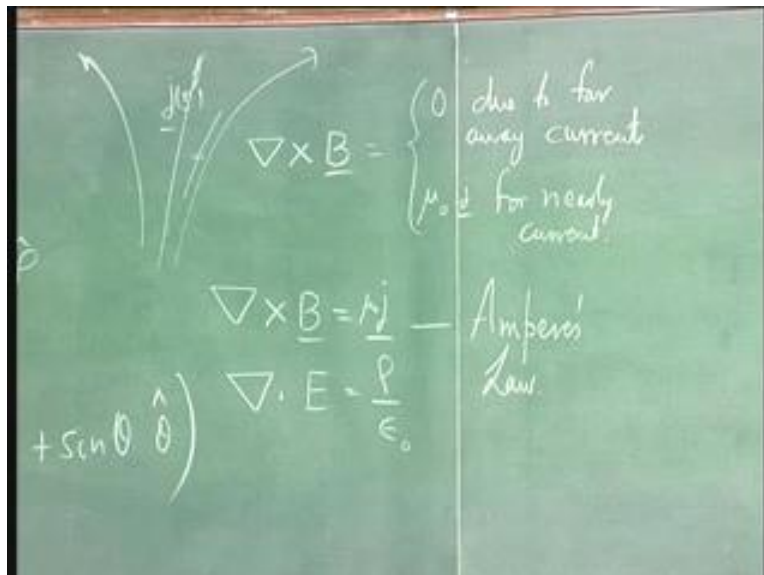 j(r')
∇ × B = { 0 due to far away current
μ₀ j for nearby current.
ρ̂
∇ × B = μj — Ampere's Law.
∇ · E = ρ/ε₀
+ sin θ θ̂ )